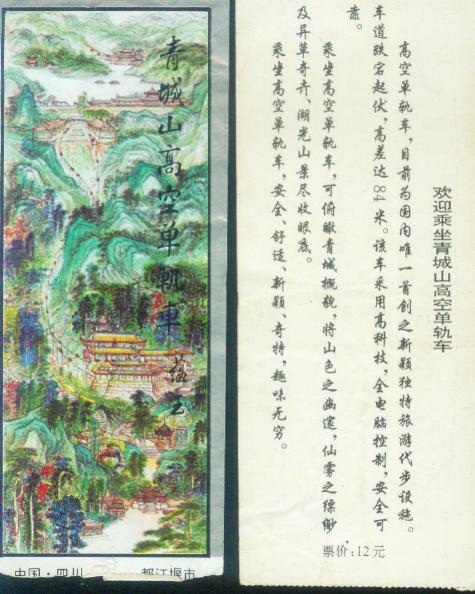 青城山高空单軌車
中国·四川
都江堰市
欢迎乘坐青城山高空单轨车
高空单轨车,目前为国内唯一首创之新颖独特旅游代步设施。
车道跌宕起伏,高差达84米。该车采用高科技,全电脑控制,安全可
靠。
乘坐高空单轨车,可俯瞰青城概貌,将山色之幽邃,仙雾之缥缈
及异草奇卉、湖光山景尽收眼底。
乘坐高空单轨车,安全、舒适、新颖、奇特,趣味无穷。
票价:12元